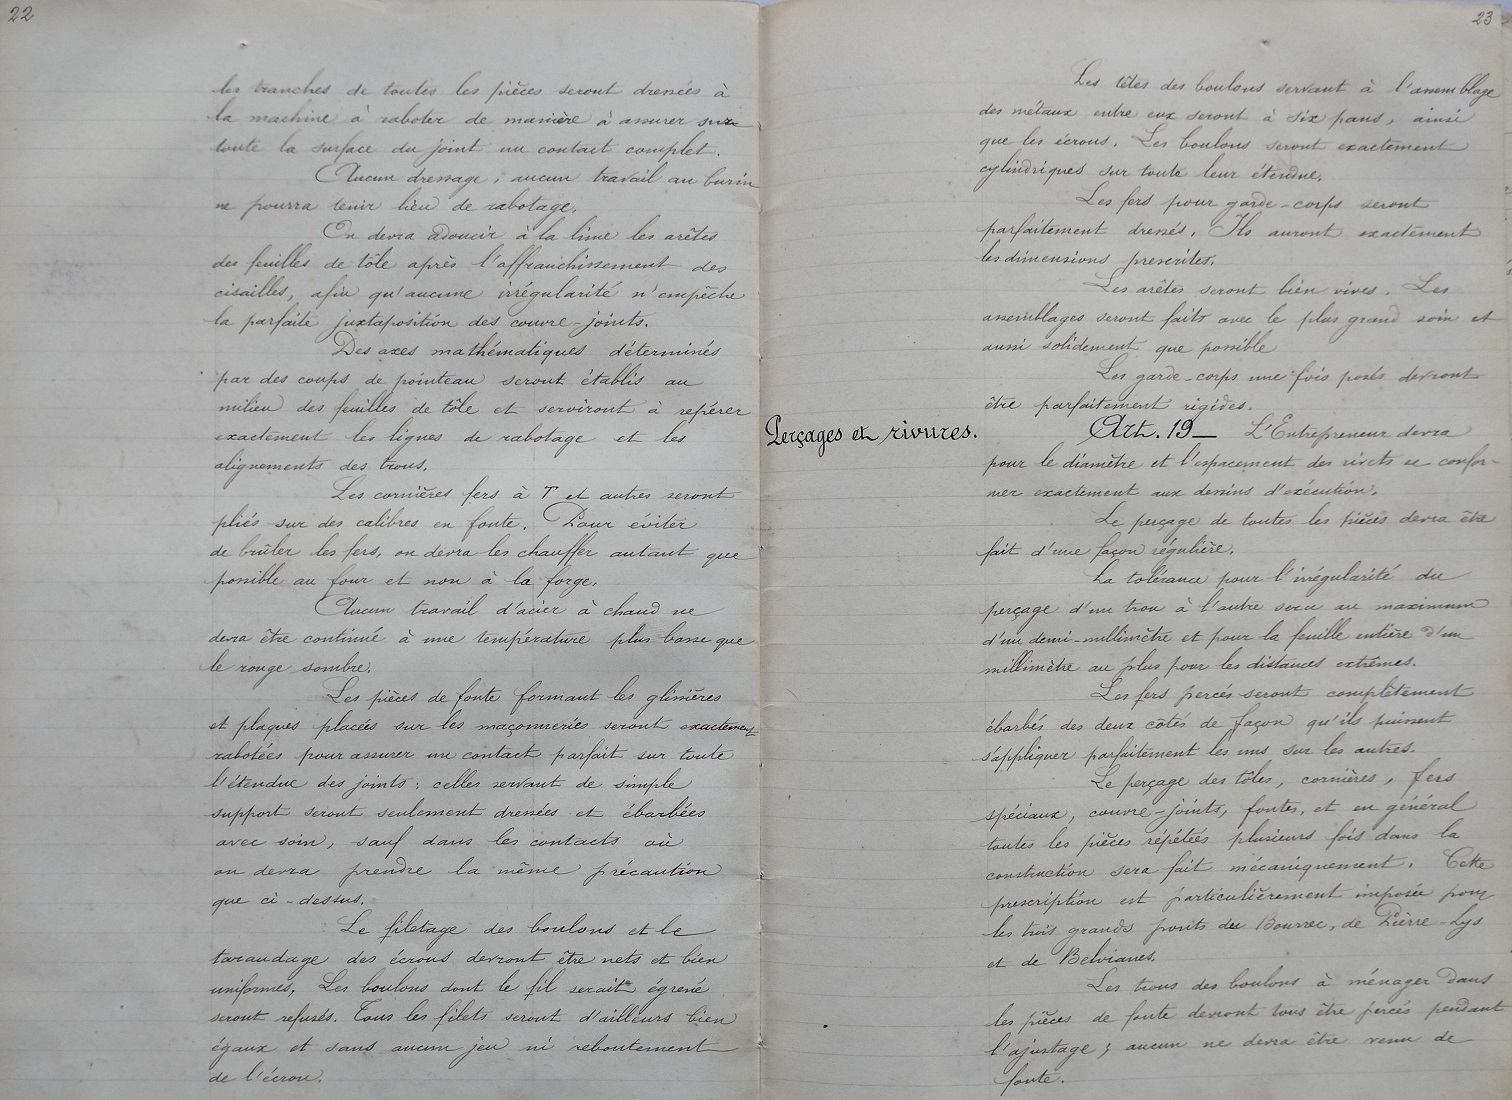 22
les tranches de toutes les pièces seront dressées à
la machine à raboter de manière à assurer sur
toute la surface du joint un contact complet.
Aucun dressage, aucun travail au burin
ne pourra tenir lieu de rabotage.
On devra adoucir à la lime les arêtes
des feuilles de tôle après l'affranchissement des
cisailles, afin qu'aucune irrégularité n'empêche
la parfaite juxtaposition des couvre-joints.
Des axes mathématiques déterminés
par des coups de pointeau seront établis au
milieu des feuilles de tôle et serviront à repérer
exactement les lignes de rabotage et les
alignements des trous.
Les cornières fers à T et autres seront
pliés sur des calibres en fonte. Pour éviter
de brûler les fers, on devra les chauffer autant que
possible au four et non à la forge.
Aucun travail d'acier à chaud ne
devra être continué à une température plus basse que
le rouge sombre.
Les pièces de fonte formant les glissières
et plaques placées sur les maçonneries seront exactement
rabotées pour assurer un contact parfait sur toute
l'étendue des joints : celles servant de simple
support seront seulement dressées et ébarbées
avec soin, sauf dans les contacts où
on devra prendre la même précaution
que ci-dessus.
Le filetage des boulons et le
taraudage des écrous devront être nets et bien
uniformes, Les boulons dont le fil serait égrené
seront refusés. Tous les filets seront d'ailleurs bien
égaux et sans aucun jeu ni reboutement
de l'écrou.
23
Les têtes des boulons servant à l'assemblage
des métaux entre eux seront à six pans, ainsi
que les écrous. Les boulons seront exactement
cylindriques sur toute leur étendue.
Les fers pour garde-corps seront
parfaitement dressés. Ils auront exactement
les dimensions prescrites.
Les arêtes seront bien vives. Les
assemblages seront faits avec le plus grand soin et
aussi solidement que possible
Les garde-corps une fois posés devront
être parfaitement rigides.
Perçages et rivures.
Art. 19 _ L'Entrepreneur devra
pour le diamètre et l'espacement des rivets se confor-
mer exactement aux dessins d'exécution.
Le perçage de toutes les pièces devra être
fait d'une façon régulière.
La tolérance pour l'irrégularité du
perçage d'un trou à l'autre sera au maximum
d'un demi-millimètre et pour la feuille entière d'un
millimètre au plus pour les distances extrêmes.
Les fers percés seront complètement
ébarbés des deux côtés de façon qu'ils puissent
s'appliquer parfaitement les uns sur les autres.
Le perçage des tôles, cornières, fers
spéciaux, couvre-joints, fontes, et en général
toutes les pièces répétées plusieurs fois dans la
construction sera fait mécaniquement. Cette
prescription est particulièrement imposée pour
les trois grands ponts du Bourrec, de Pierre-Lys
et de Belvianes.
Les trous des boulons à ménager dans
les pièces de fonte devront tous être percés pendant
l'ajustage ; aucun ne devra être venu de
fonte.